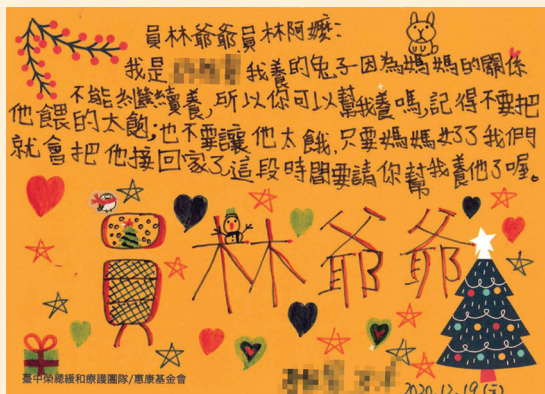 員林爺爺員林阿嬤:
我是 我養的兔子因為媽媽的關係
不能繼續養,所以你可以幫我養嗎,記得不要把
他餵的太飽,也不要讓他太餓,只要媽媽好了我們
就會把他接回家了這段時間要請你幫我養他了喔。
員林爺爺
臺中榮總緩和療護團隊/惠康基金會
2020.12.19(六)